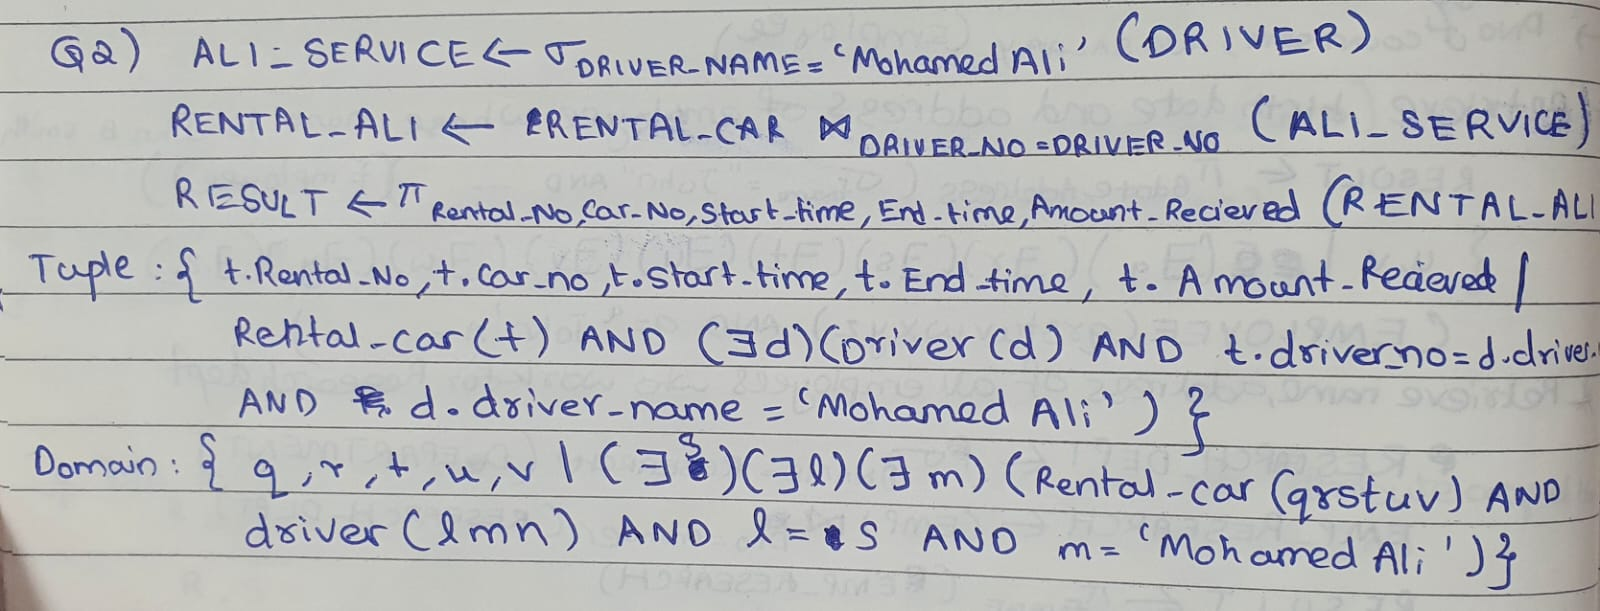 Q2) ALI_SERVICE ← σ DRIVER_NAME = 'Mohamed Ali' (DRIVER)
RENTAL_ALI ← RENTAL_CAR ⋈ DRIVER_NO = DRIVER_NO (ALI_SERVICE)
RESULT ← π Rental_No, Car_No, Start_time, End_time, Amount_Recieved (RENTAL_ALI
Tuple : { t.Rental_No, t.Car_no, t.Start_time, t.End_time, t.Amount_Recieved |
Rental_car(t) AND (∃d)(Driver(d) AND t.driver_no = d.driver.
AND d.driver_name = 'Mohamed Ali') }
Domain : { q, r, t, u, v | (∃s)(∃l)(∃m) (Rental_car (qrstuv) AND
driver (lmn) AND l = s AND m = 'Mohamed Ali')}